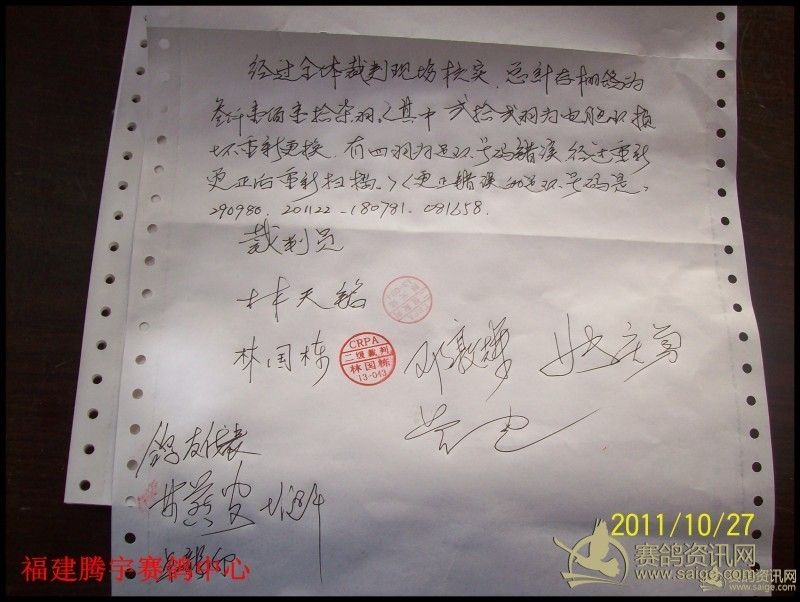 经过全体裁判现场核实，总计存棚鸽为
叁仟壹佰壹拾柒羽，其中 贰拾贰羽为电脑环损
坏重新更换，有四羽为足环号码错误 经过重新
更正后重新扫描。（更正错误的足环号码是：
290980. 201122 - 180781. 081658.
裁判员
林天铭
林国栋
CRPA
二级裁判
林国栋
13-043
鸽友代表
2011/10/27
福建腾宇赛鸽中心
赛鸽资讯网
www.saige.com
赛鸽资讯网
www.saige.com